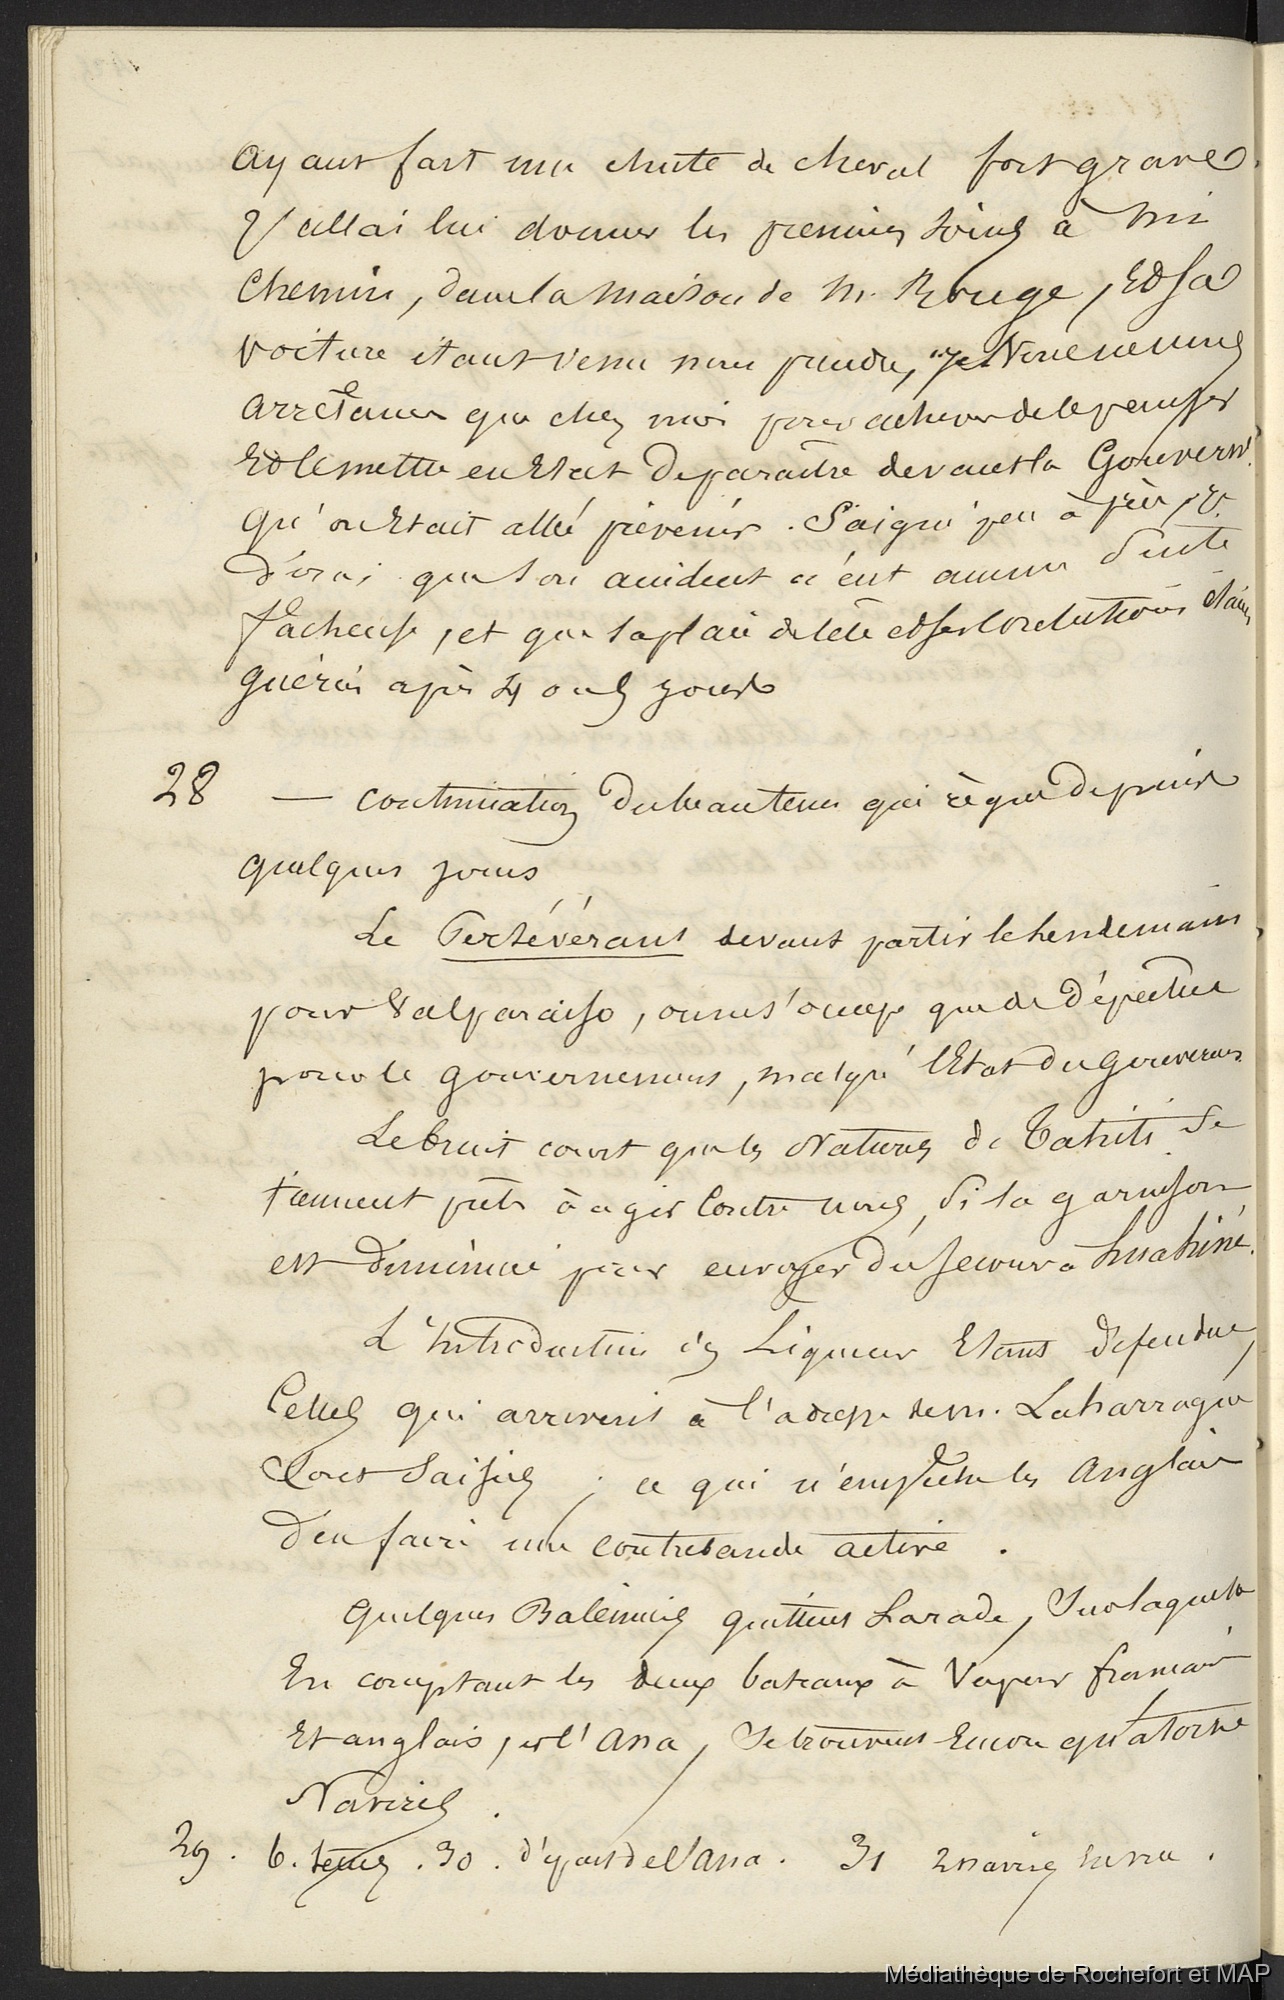 ayant fait une chute de cheval fort grave.
J'allai lui donner les premiers soins à mi
chemin, dans la maison de M. Rouge, et sa
voiture étant venu nous prendre, nous ne nous
arrêtames que chez moi pour achever de le panser
et le mettre en état de paraître devant la Gouvern.
qu'on était allé prévenir. Saigné peu à près, je
dirai que son accident n'eut aucune suite
fâcheuse, et que sa plaie de tête et ses contusions étaient
guéris après 4 ou 5 jours
28 — continuation du beau tems qui règne depuis
quelques jours
Le Persévérant devant partir le lendemain
pour Valparaiso, on ne s'occupe que de dépêches
pour le gouvernement, malgré l'état du gouverneur
Le bruit court que les Naturels de Tahiti se
tiennent prêts à agir contre nous, si la garnison
est diminuée pour envoyer du secours à huahiné.
L'introduction des Liqueurs étant défendue,
celles qui arrivent à l'adresse de M. Laharrague
sont saisies ; ce qui n'empêche les anglais
d'en faire une contrebande active.
Quelques Baleiniers quittent la rade, sur laquelle
en comptant les deux bateaux à vapeur français
et anglais, et l'ana, se trouvent encore quatorze
Navires.
29. b. tems. 30. départ de l'ana. 31 2 navires en vue.